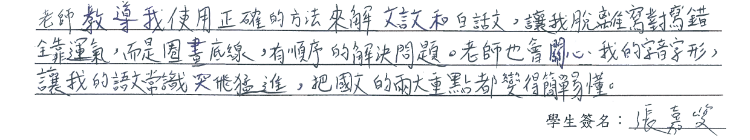 老師教導我使用正確的方法來解文言文和白話文，讓我脫離寫對寫錯
全靠運氣，而是圈畫底線，有順序的解決問題。老師也會關心我的字音字形，
讓我的語文常識突飛猛進，把國文的兩大重點都變得簡單易懂。
學生簽名：張嘉